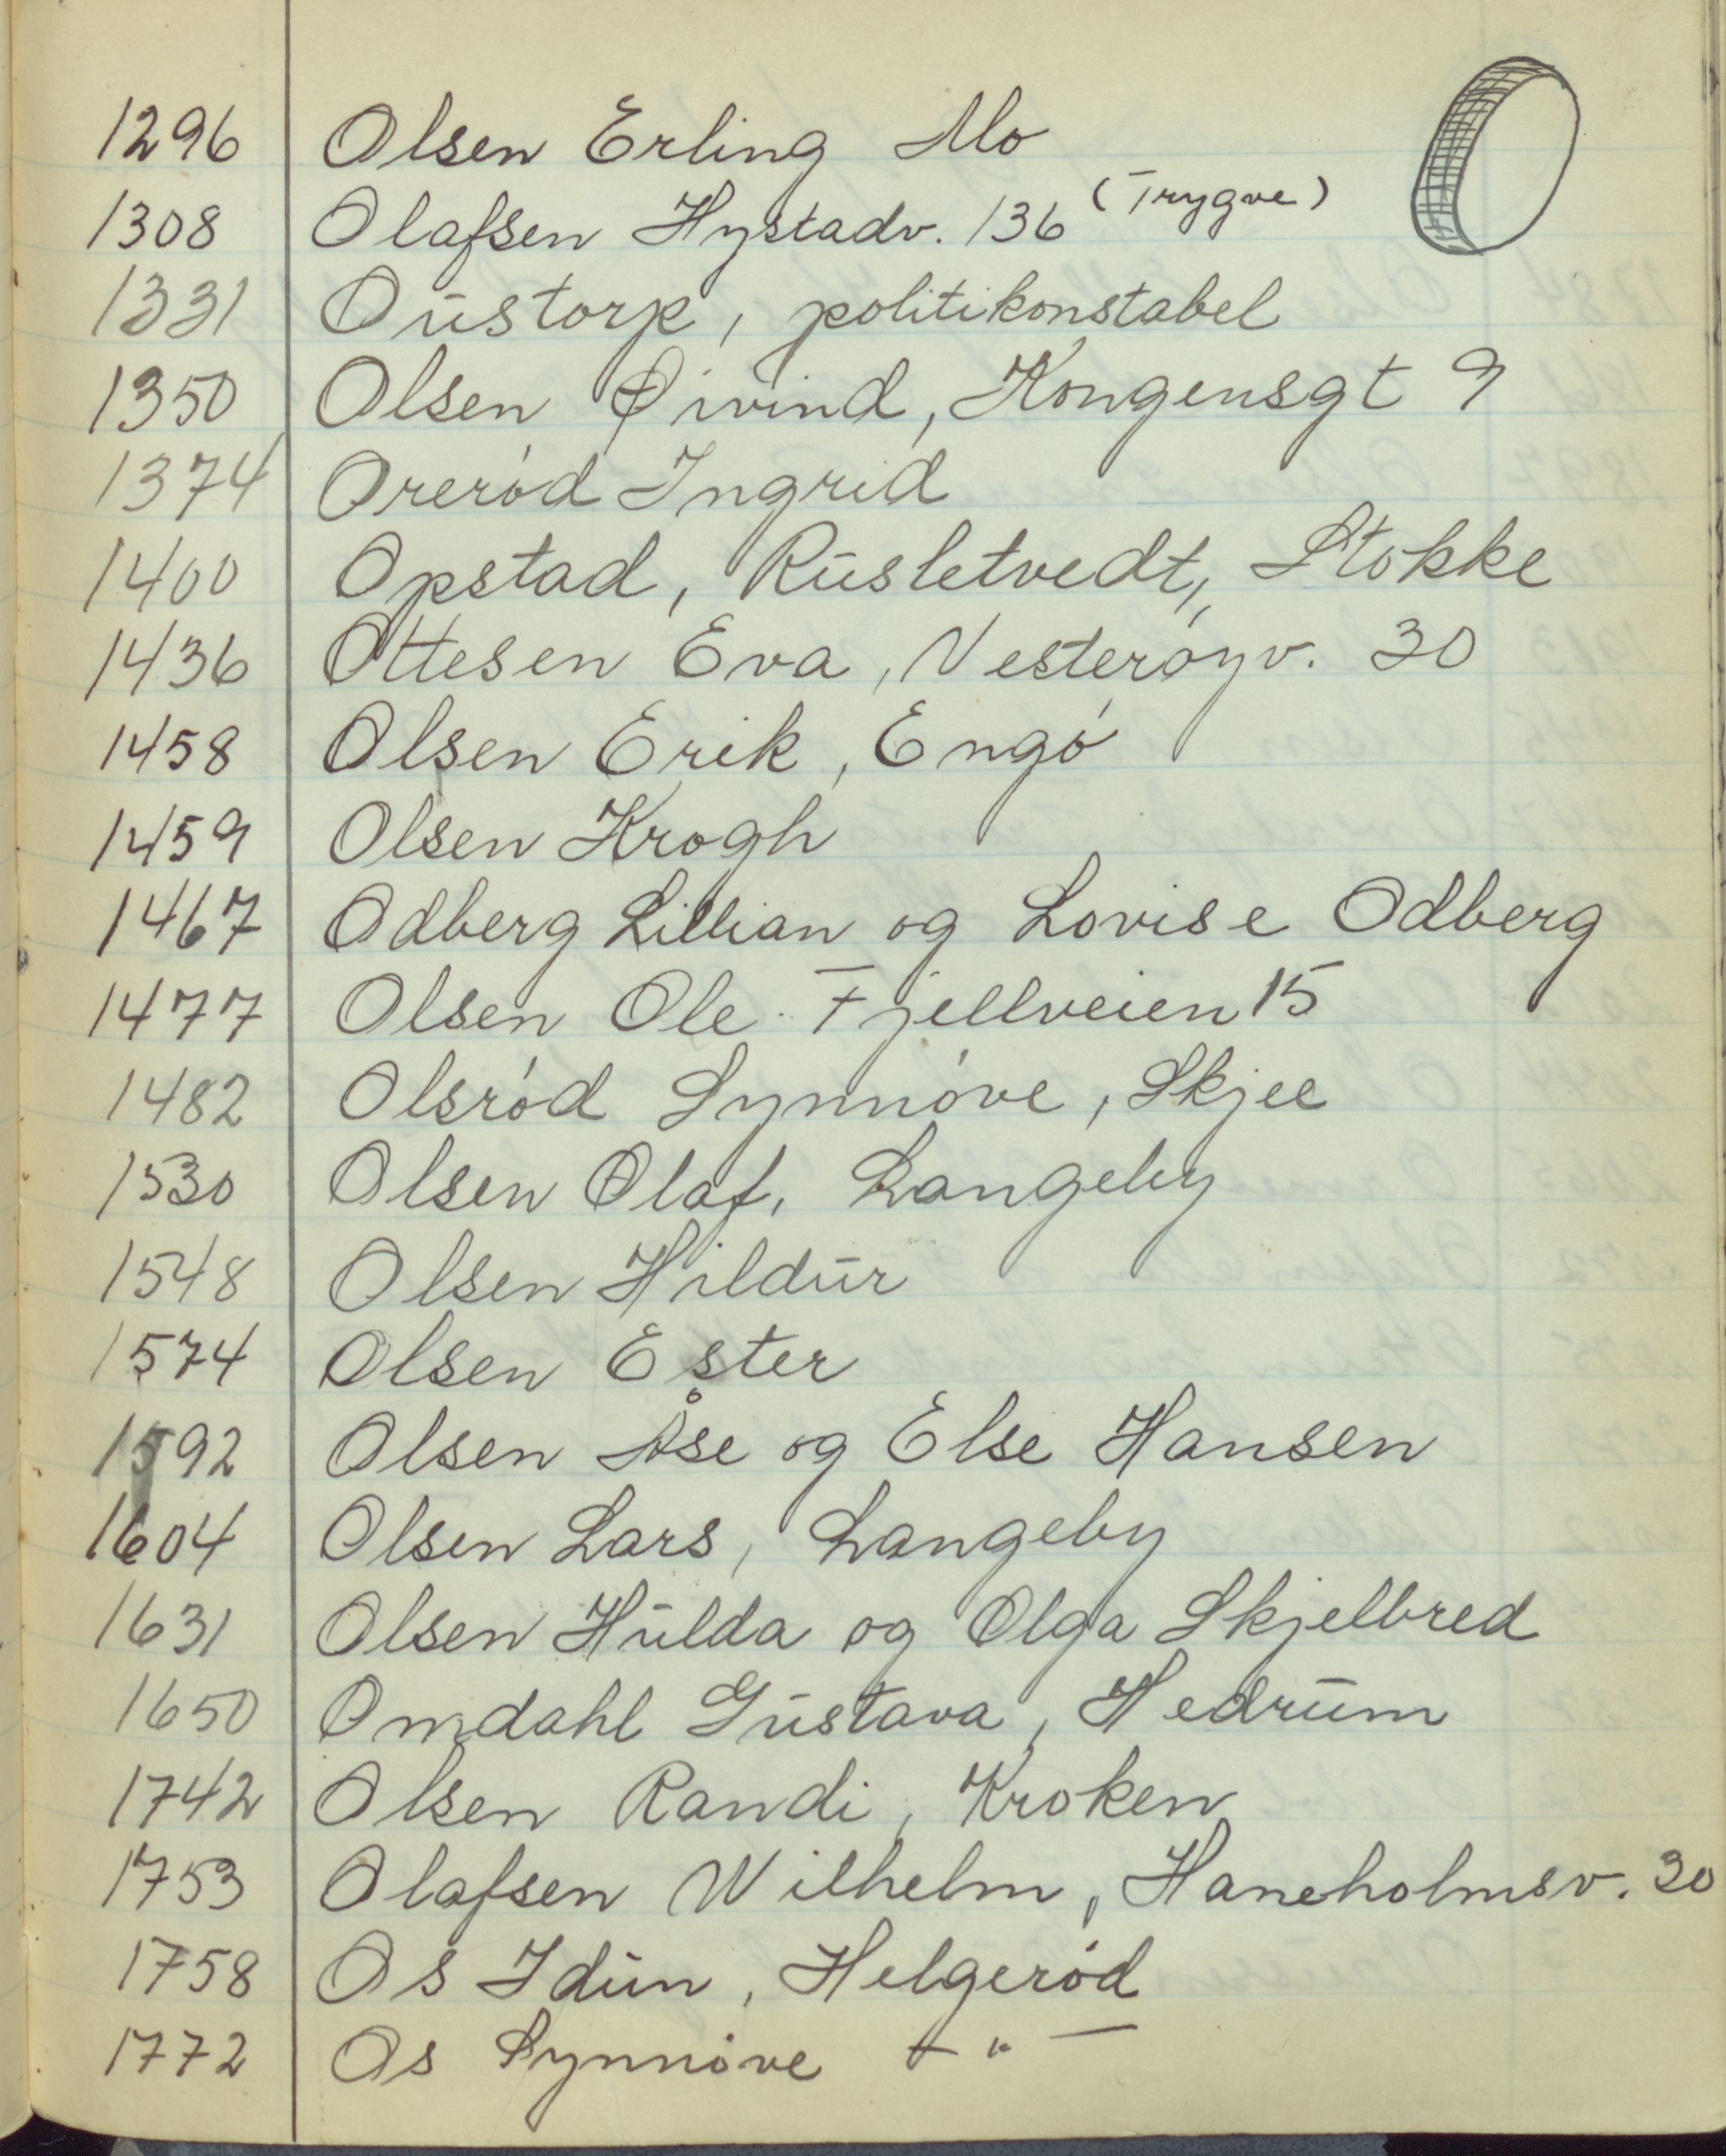 1296 Olsen Erling Mo
1308 Olafsen Hystadv. 136 (Trygve)
1331 Oustorp, politikonstabel
1350 Olsen Øivind, Kongensgt 9
1374 Oreród Ingrid
1400 Opstad, Rusletvedt, Stokke
1436 Ottesen Eva, Vesteróyv. 30
1458 Olsen Erik, Engó
1459 Olsen Krogh
1467 Odberg Lillian og Lovise Odberg
1477 Olsen Ole. Fjellveien 15
1482 Olsród Synnóve, Skjee
1530 Olsen Olaf, Langeby
1548 Olsen Hildur
1574 Olsen Ester
1592 Olsen Åse og Else Hansen
1604 Olsen Lars, Langeby
1631 Olsen Hulda og Olga Skjelbred
1650 Omdahl Gustava, Hedrum
1742 Olsen Randi, Kroken
1753 Olafsen Wilhelm, Haneholmsv. 30
1758 Os Idun, Helgeród
1772 Os Synnóve — " —